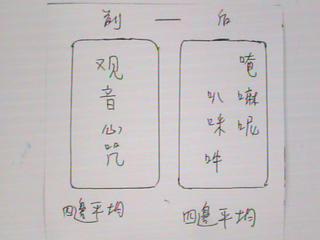 前 — 后
观音心咒
唵嘛呢
叭咪吽
四邊平均
四邊平均